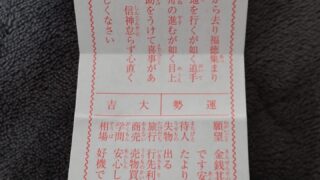 から去り福徳集まり
地を行くが如く追手
舟の進むが如く目上
助をうけて喜事があ
信神怠らず心直く
しくなさい
運勢 大吉
願望
金銭其
です安
待人
たより
失物
出る
旅行
行先利
商売
売物買
学問
安心し
相場
好機で